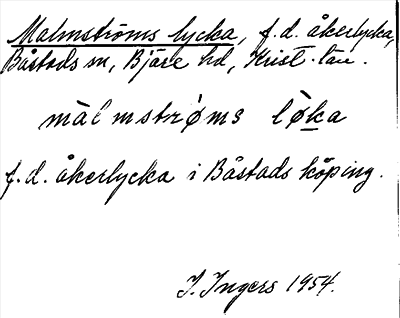 Malmströms lycka, f.d. åkerlycka,
Båstads sn, Bjäre hd, Krist. län.
màlmstrǿms lǿka
f.d. åkerlycka i Båstads köping.
I. Ingers 1954.